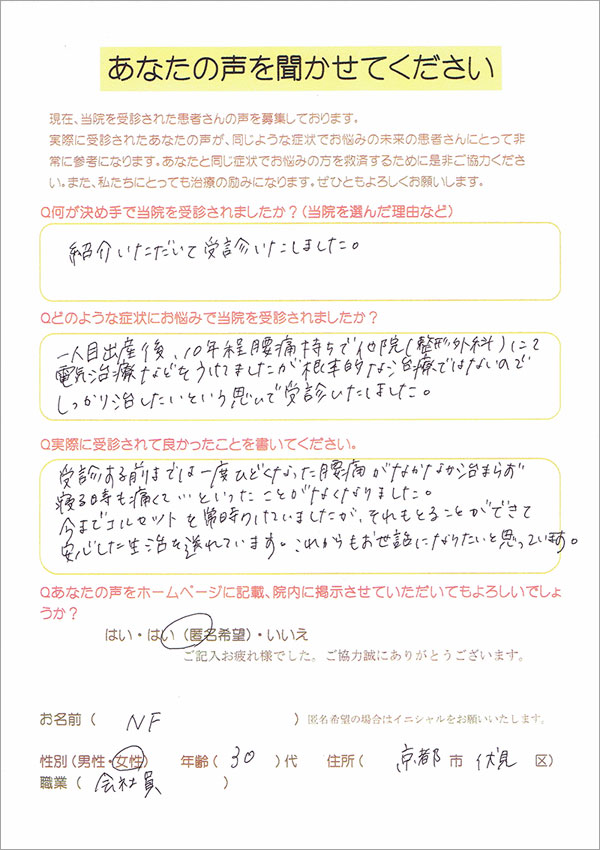 あなたの声を聞かせてください
現在、当院を受診された患者さんの声を募集しております。
実際に受診されたあなたの声が、同じような症状でお悩みの未来の患者さんにとって非
常に参考になります。あなたと同じ症状でお悩みの方を救済するために是非ご協力くださ
い。また、私たちにとっても治療の励みになります。ぜひともよろしくお願いします。
Q何が決め手で当院を受診されましたか?(当院を選んだ理由など)
紹介いただいて受診いたしました。
Qどのような症状にお悩みで当院を受診されましたか?
一人目出産後、10年程腰痛持ちで他院(整形外科)にて
電気治療などをうけてましたが根本的な治療ではないので
しっかり治したいという思いで受診いたしました。
Q実際に受診されて良かったことを書いてください。
受診する前までは一度ひどくなった腰痛がなかなか治まらず
寝る時も痛くて…といったことがなくなりました。
今までコルセットを常時つけていましたが、それもとることができて
安心した生活を送れています。これからもお世話になりたいと思っています。
Qあなたの声をホームページに記載、院内に掲示させていただいてもよろしいでしょ
うか?
はい・はい(匿名希望)・いいえ
ご記入お疲れ様でした。ご協力誠にありがとうございます。
お名前( NF )匿名希望の場合はイニシャルをお願いいたします。
性別(男性・女性) 年齢( 30 )代 住所( 京都 市 伏見 区)
職業( 会社員 )